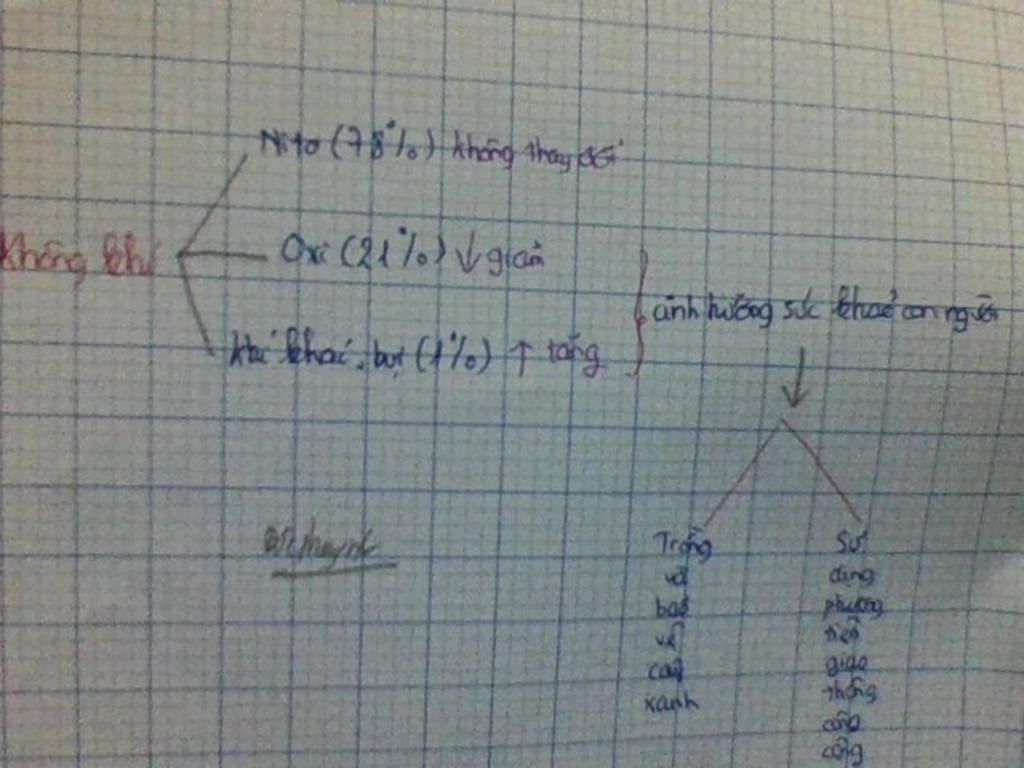 Nitơ (78%) không thay đổi
Không khí
Oxi (21%) ↓ giảm
khí khác, bụi (1%) ↑ tăng
ảnh hưởng sức khoẻ con người
Trồng
và
bảo
vệ
cây
xanh
Sử
dụng
phương
tiện
giao
thông
công
cộng